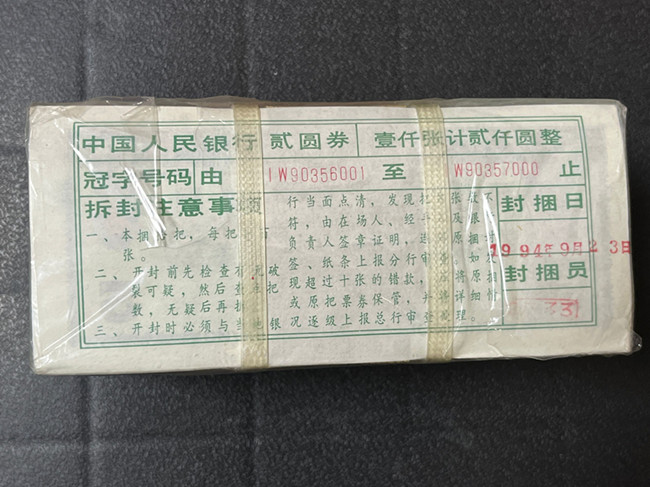 中国人民银行 贰圆券 壹仟张计贰仟圆整
冠字号码 由 IW90356001 至 W90357000 止
拆封注意事项
一、本捆 把,每把 百
张。
二、开封前先检查有无破
裂可疑,然后 把
数,无疑后再拆
三、开封时必须与 地银
行当面点清,发现 张 不
符,由在场人、经手 及银
负责人签章证明,连 原捆
签、纸条上报分行审 如发
现超过十张的错款, 将原捆
或原把票券保管,并将详细情
况逐级上报总行审查 理。
封捆日
1994年9月23日
封捆员
331